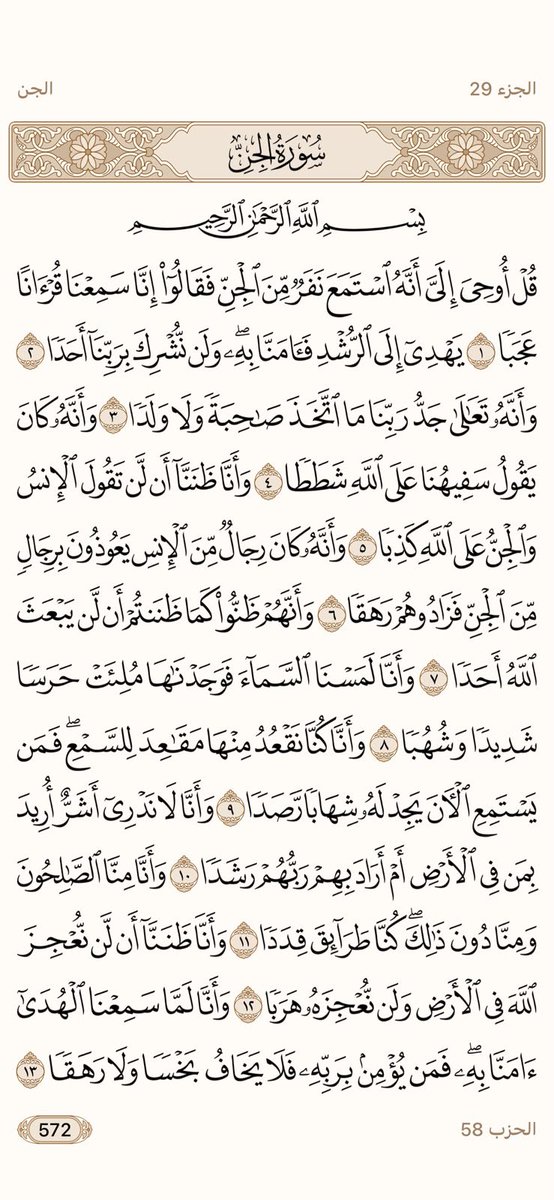 الجزء 29
الجن
سُورَةُ الجِنِّ
بِسْمِ ٱللَّهِ ٱلرَّحْمَٰنِ ٱلرَّحِيمِ
قُلْ أُوحِىَ إِلَىَّ أَنَّهُ ٱسْتَمَعَ نَفَرٌ مِّنَ ٱلْجِنِّ فَقَالُوٓا۟ إِنَّا سَمِعْنَا قُرْءَانًا
عَجَبًا ١ يَهْدِىٓ إِلَى ٱلرُّشْدِ فَـَٔامَنَّا بِهِۦ ۖ وَلَن نُّشْرِكَ بِرَبِّنَآ أَحَدًا ٢
وَأَنَّهُۥ تَعَٰلَىٰ جَدُّ رَبِّنَا مَا ٱتَّخَذَ صَٰحِبَةً وَلَا وَلَدًا ٣ وَأَنَّهُۥ كَانَ
يَقُولُ سَفِيهُنَا عَلَى ٱللَّهِ شَطَطًا ٤ وَأَنَّا ظَنَنَّآ أَن لَّن تَقُولَ ٱلْإِنسُ
وَٱلْجِنُّ عَلَى ٱللَّهِ كَذِبًا ٥ وَأَنَّهُۥ كَانَ رِجَالٌ مِّنَ ٱلْإِنسِ يَعُوذُونَ بِرِجَالٍ
مِّنَ ٱلْجِنِّ فَزَادُوهُمْ رَهَقًا ٦ وَأَنَّهُمْ ظَنُّوا۟ كَمَا ظَنَنتُمْ أَن لَّن يَبْعَثَ
ٱللَّهُ أَحَدًا ٧ وَأَنَّا لَمَسْنَا ٱلسَّمَآءَ فَوَجَدْنَٰهَا مُلِئَتْ حَرَسًا
شَدِيدًا وَشُهُبًا ٨ وَأَنَّا كُنَّا نَقْعُدُ مِنْهَا مَقَٰعِدَ لِلسَّمْعِ ۖ فَمَن
يَسْتَمِعِ ٱلْـَٔانَ يَجِدْ لَهُۥ شِهَابًا رَّصَدًا ٩ وَأَنَّا لَا نَدْرِىٓ أَشَرٌّ أُرِيدَ
بِمَن فِى ٱلْأَرْضِ أَمْ أَرَادَ بِهِمْ رَبُّهُمْ رَشَدًا ١٠ وَأَنَّا مِنَّا ٱلصَّٰلِحُونَ
وَمِنَّا دُونَ ذَٰلِكَ ۖ كُنَّا طَرَآئِقَ قِدَدًا ١١ وَأَنَّا ظَنَنَّآ أَن لَّن نُّعْجِزَ
ٱللَّهَ فِى ٱلْأَرْضِ وَلَن نُّعْجِزَهُۥ هَرَبًا ١٢ وَأَنَّا لَمَّا سَمِعْنَا ٱلْهُدَىٰٓ
ءَامَنَّا بِهِۦ ۖ فَمَن يُؤْمِنۢ بِرَبِّهِۦ فَلَا يَخَافُ بَخْسًا وَلَا رَهَقًا ١٣
الحزب 58
572